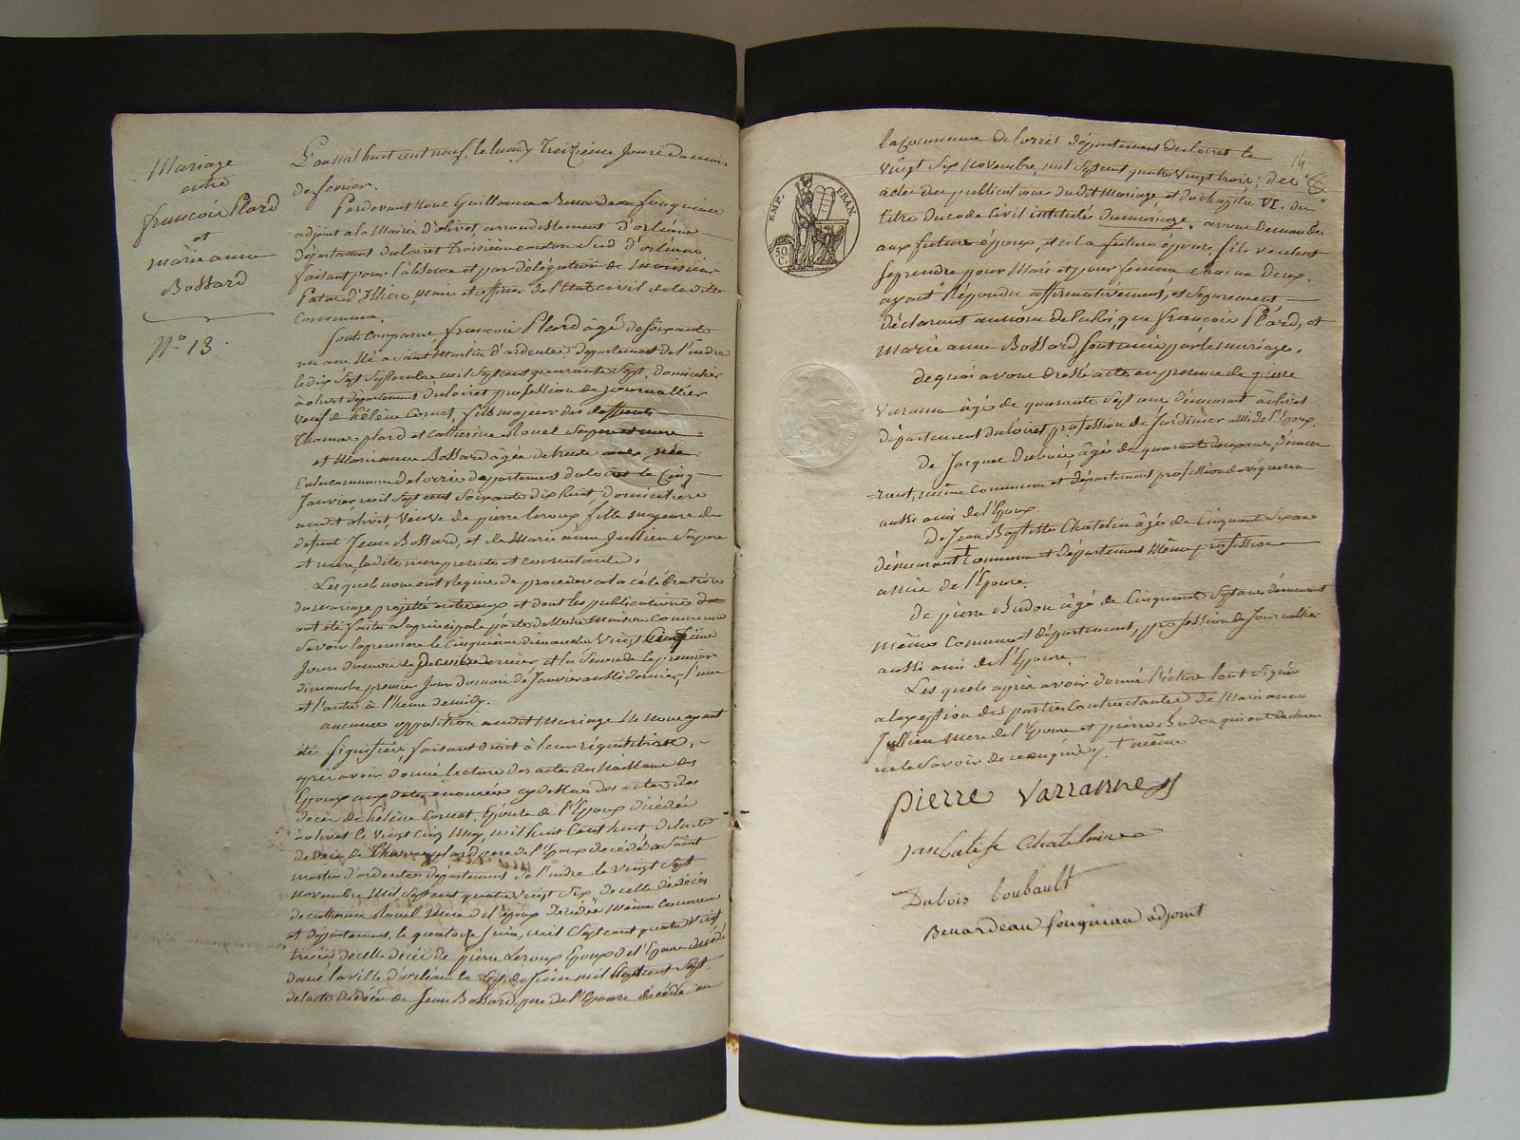 Mariage
entre
françois Plard
et
marie anne
Bossard
N.o 13.
L'an mil huit cent neuf, le lundy Treizieme Jour du mois
de fevrier.
Pardevant Nous Guillaume Benardeau fouqueau
adjoint a la Mairie d'olivet, arrondissement D'orléans
département du Loiret Troisieme canton Sud d'orléans
faisant pour l'absence et par délégation de Monsieur
maire et officier de l'Etat civil de la dite
Commune.
Sont Comparus françois Plard âgé de soixante
un ans Né a Saint Martin d'ardentes département de l'indre
le dix Sept Septembre mil Sept cent quarante Sept, domicilié
à olivet département du loiret profession de Journallier
veuf de hélène Cornet, fils majeur des deffunts
Thomas plard et catherine Ses pere et mere
et Marie anne Bossard agée de trente ans, née
en la commune de département du loiret le Cinq
Janvier mil Sept cent Soixante dix huit domiciliée
audit olivet, Veuve de pierre leroux fille majeure de
defunt Jean Bossard, et de Marie anne Jullien Ses pere
et mere, la dite mere presente et consentante.
Lesquels nous ont réquis de proceder a la célébration
du mariage projetté entr'eux et dont les publications
ont été faites a la principale porte de Notre Maison Commune
Savoir la premiere le dimanche Vingt Cinquième
Jour du mois de Decembre dernier et la Seconde le premier
dimanche premier Jour du mois de Janvier aussi dernier, l'une
et l'autre à l'heure de midy.
aucunne opposition audit Mariage Ne Nous ayant
été Signifiée, faisant droit à leur réquisition,
après avoir donné lecture des actes de Naissance des
Epoux aux dates énoncées cy dessus des actes de
deces de hélène Cornet, Epouse de l'Epoux décédée
à olivet le vingt Cinq May, mil huit Cent huit de l'acte
de deces de Thomas plard pere de l'Epoux décédé a Saint
martin d'ardentes département de l'indre le vingt Sept
Novembre mil Sept cent quatre vingt Six, de celle de déces
de catherine mere de l'époux décédée même commune
et département, le quatorze Juin, mil Sept cent quatre Vingt
treize de celle deces de pierre Leroux Epoux de l'Epouse décédé
dans la Ville d'orléans le
de l'acte de déces de Jean Bossard, pere de l'Epouse décédé en
la Commune de lorris département du Loiret le
vingt Six novembre mil Sept cent quatre vingt trois; de l'
acte des publications du dit Mariage, et du chapitre VI. du
titre du code Civil intitulé du mariage, avons demandé
aux futurs époux, et la future épouse, s'ils veulent
se prendre pour Mari et pour femme chacun d'eux
ayant Répondu affirmativement, et séparement
déclarons au nom de la loi, que françois Plard, et
Marie anne Bossard sont unis par le mariage.
de quoi avons dressé acte en presence de pierre
Varanne âgé de quarante Sept ans demeurant a olivet
département du Loiret profession de Jardinier ami de l'Epoux.
De Jacques Dubois, âgé de quarante deux ans, demeu
rant, même commune et département profession de vigneron
aussi ami de l'Epoux.
de Jean Baptiste Chatelin âgé de Cinquante Six ans
demeurant Commune et département Même profession
amie de l'Epouse.
De pierre chudou âgé de Cinquante Sept ans demeurant
même commune et département, profession de Journallier
aussi ami de l'Epouse.
Les quels après avoir donné l'ecture l'ont Signé
a l'exeption des parties Contractantes de Marie anne
Jullien mere de l'Epouse et pierre chudou qui ont déclaré
ne le Savoir de ce enquis. † même
Pierre Varranne
Jan batiste Chatelain
Dubois Loubault
Benardeau fouqueau adjoint
EMP. FRAN.
50 C.